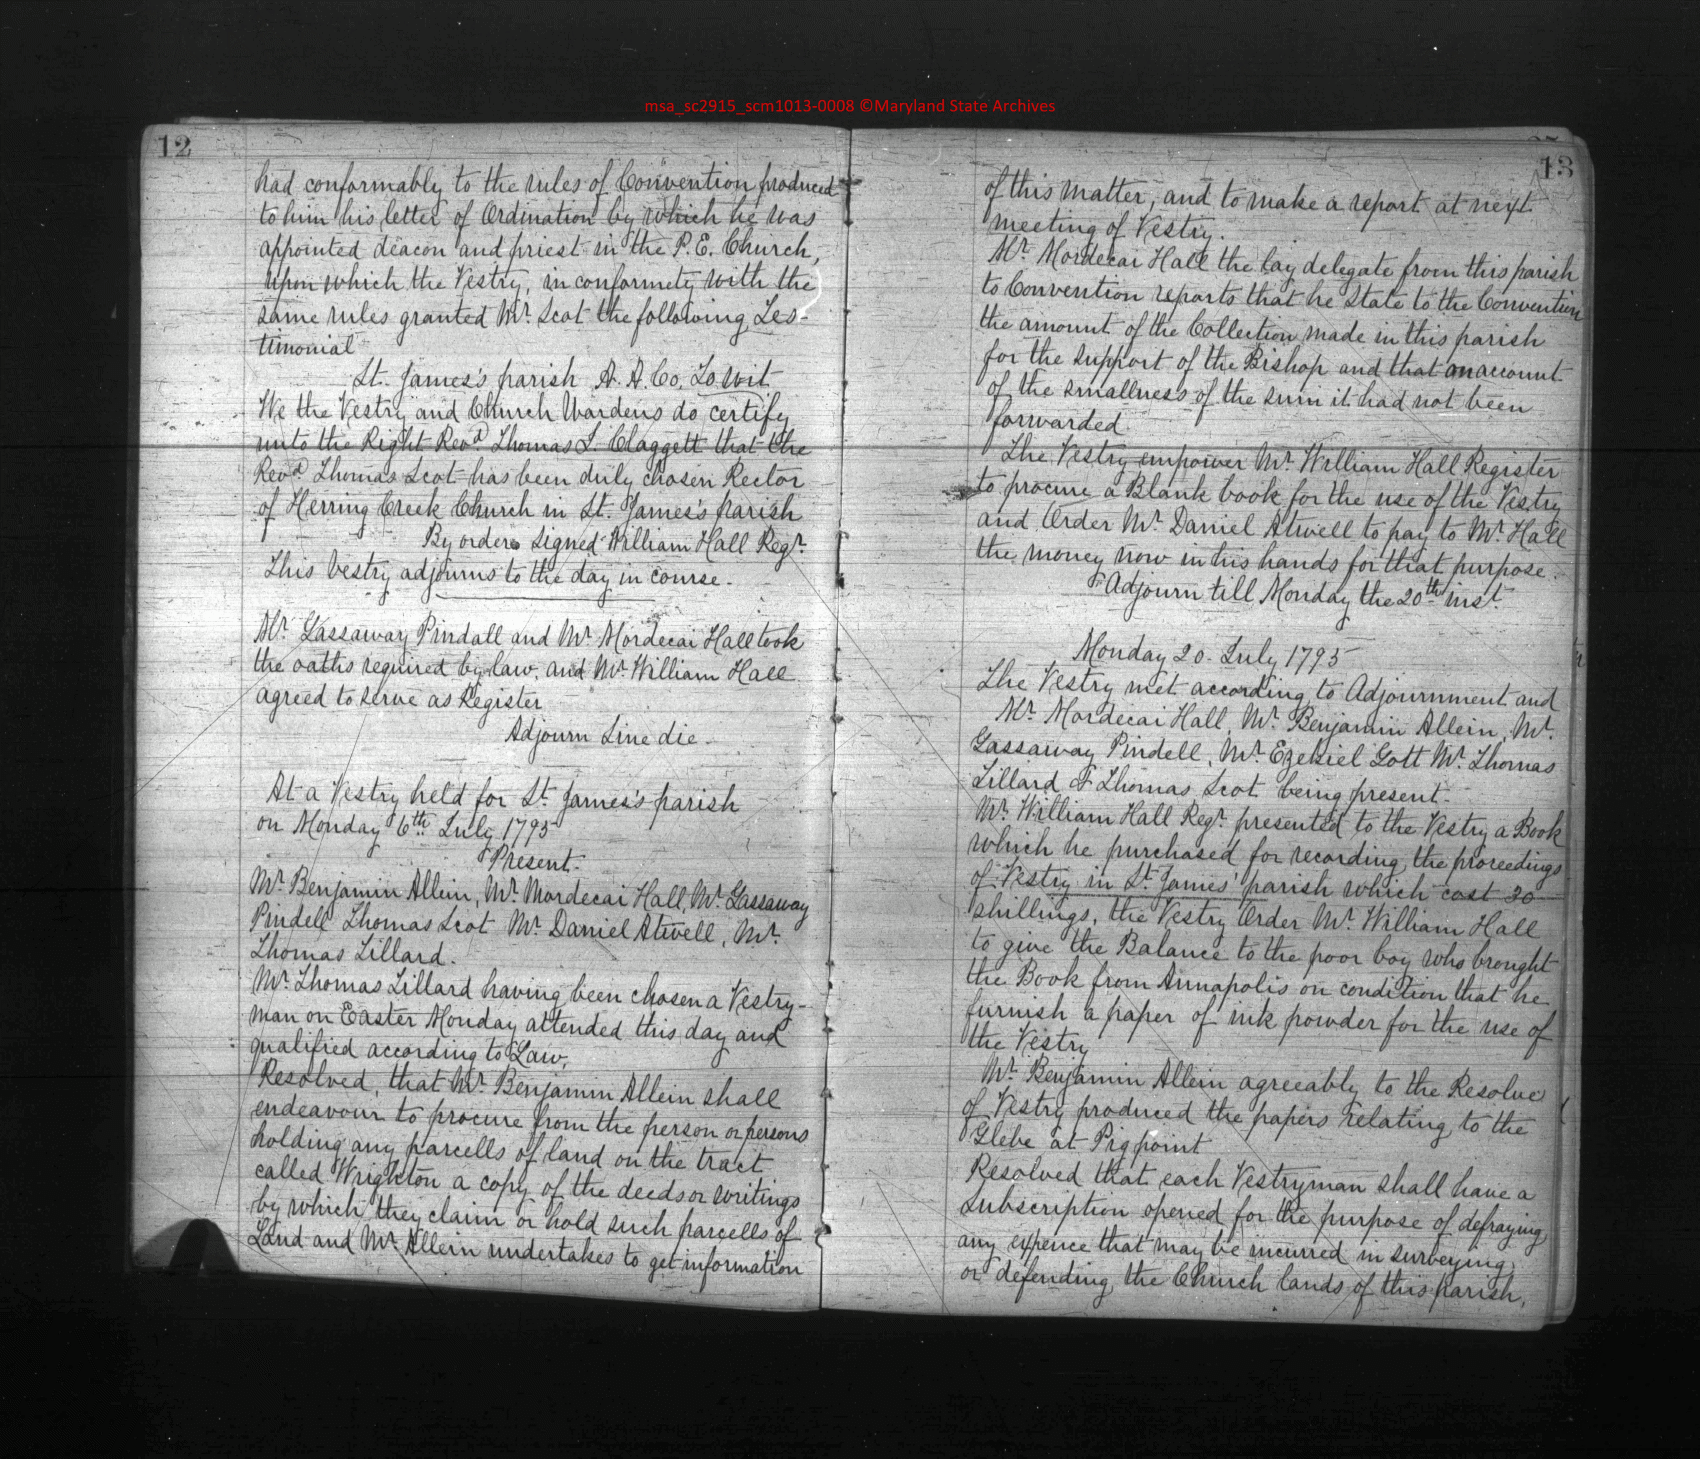 msa_sc2915_scm1013-0008 ©Maryland State Archives
12
had conformably to the rules of Convention produced
to him his letter of Ordination by which he was
appointed deacon and priest in the P. E. Church,
upon which the Vestry, in conformety with the
same rules granted Mr. Scot the following Tes-
timonial
St. James's parish A. A. Co. To wit
We the Vestry and Church Wardens do certify
unto the Right Revd. Thomas J. Claggett that the
Revd. Thomas Scot has been duly chosen Rector
of Herring Creek Church in St. James's parish
By order Signed William Hall Regr.
This Vestry adjourns to the day in course.
Mr. Gassaway Pindall and Mr. Mordecai Hall took
the oaths required by law, and Mr. William Hall
agreed to serve as Register
Adjourn Sine die.
At a Vestry held for St. James's parish
on Monday 6th July 1795
Present.
Mr. Benjamin Allein, Mr. Mordecai Hall, Mr. Gassaway
Pindell Thomas Scot Mr. Daniel Atwell, Mr.
Thomas Tillard.
Mr. Thomas Tillard having been chosen a Vestry-
man on Easter Monday attended this day and
qualified according to Law,
Resolved, that Mr. Benjamin Allein shall
endeavour to procure from the person or persons
holding any parcells of land on the tract
called Wrighton a copy of the deeds or writings
by which they claim or hold such parcells of
Land and Mr. Allein undertakes to get information
13
of this matter, and to make a report at next
meeting of Vestry.
Mr. Mordecai Hall the lay delegate from this parish
to Convention reports that he State to the Convention
the amount of the Collection made in this parish
for the support of the Bishop and that on account
of the smallness of the sum it had not been
forwarded
The Vestry empower Mr. William Hall Register
to procure a Blank book for the use of the Vestry
and Order Mr. Daniel Atwell to pay to Mr. Hall
the money now in his hands for that purpose.
Adjourn till Monday the 20th inst.
Monday 20. July 1795
The Vestry met according to Adjournment and
Mr. Mordecai Hall, Mr. Benjamin Allein, Mr.
Gassaway Pindell, Mr. Ezekiel Gott Mr. Thomas
Tillard & Thomas Scot being present.
Mr. William Hall Regr. presented to the Vestry a Book
which he purchased for recording the proeedings
of Vestry in St. James' parish which cost 30
shillings, the Vestry Order Mr. William Hall
to give the Balance to the poor boy who brought
the Book from Annapolis on condition that he
furnish a paper of ink powder for the use of
the Vestry
Mr. Benjamin Allein agreeably to the Resolve
of Vestry produced the papers relating to the
Glebe at Pigpoint
Resolved that each Vestryman shall have a
Subscription opened for the purpose of defraying
any expence that may be incurred in surveying
or defending the Church lands of this parish,